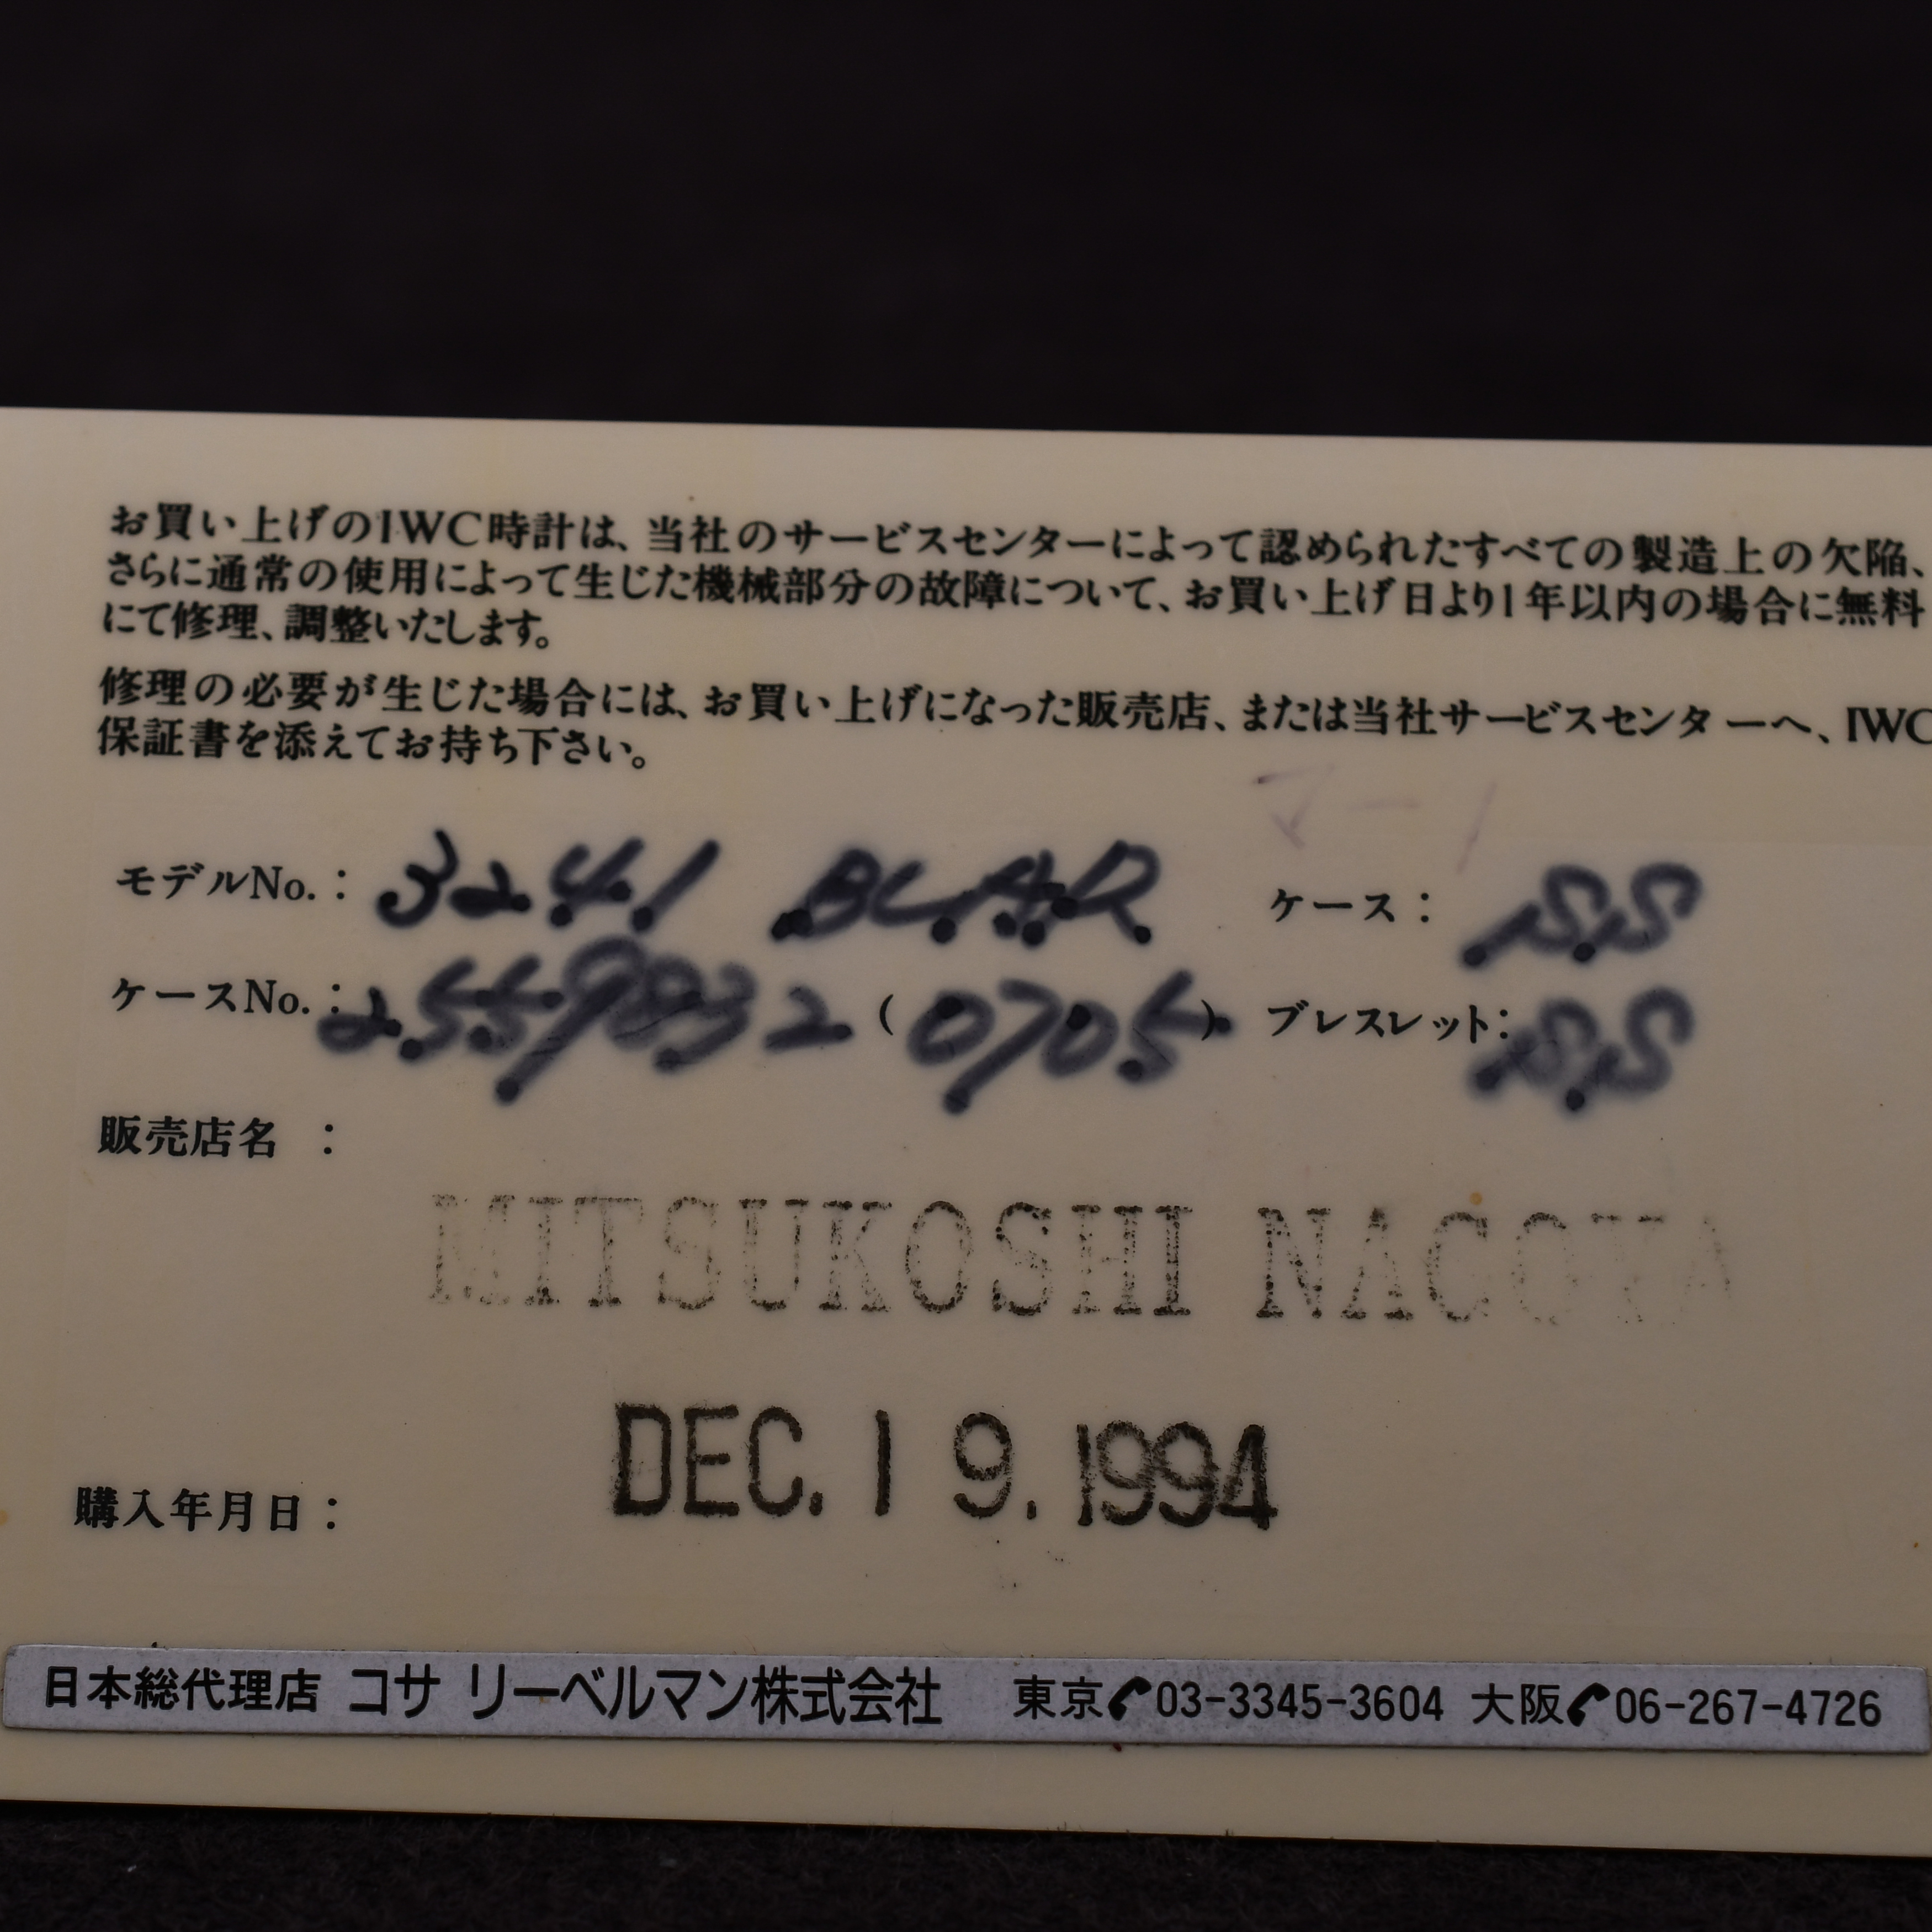 お買い上げのIWC時計は、当社のサービスセンターによって認められたすべての製造上の欠陥、
さらに通常の使用によって生じた機械部分の故障について、お買い上げ日より1年以内の場合に無料
にて修理、調整いたします。
修理の必要が生じた場合には、お買い上げになった販売店、または当社サービスセンターへ、IWC
保証書を添えてお持ち下さい。
モデルNo.： 3241 ケース： S.S
ケースNo.： 2559832 (0705) ブレスレット： S.S
販売店名 ：
MITSUKOSHI NAGOYA
購入年月日： DEC. 1 9. 1994
日本総代理店 コサ リーベルマン株式会社 東京 03-3345-3604 大阪 06-267-4726